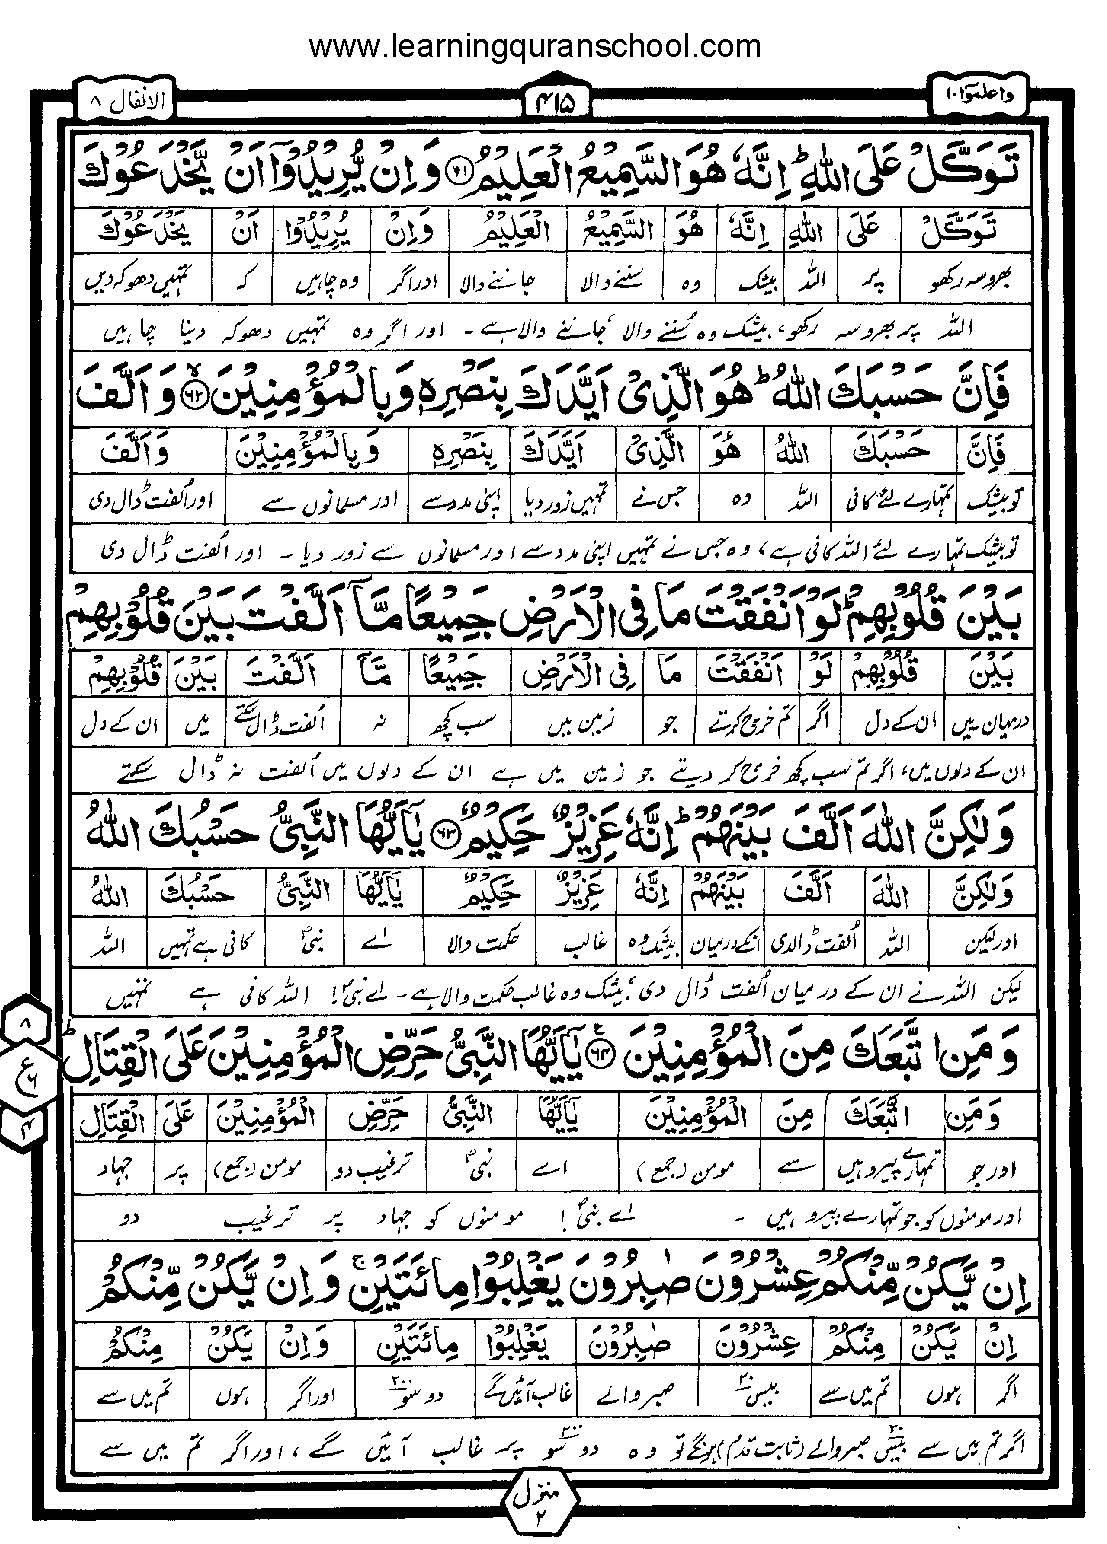 www.learningquranschool.com
واعلموٓا ١٠
٤١۵
الانفال ٨
تَوَكَّلْ عَلَى اللّٰهِ ؕ اِنَّهٗ هُوَ السَّمِيْعُ الْعَلِيْمُ ﴿٦١﴾ وَ اِنْ يُّرِيْدُوْۤا اَنْ يَّخْدَعُوْكَ
تَوَكَّلْ عَلَى اللّٰهِ اِنَّهٗ هُوَ السَّمِيْعُ الْعَلِيْمُ وَاِنْ يُرِيْدُوْا اَنْ يَخْدَعُوْكَ
بھروسہ رکھو پر اللہ بیشک وہ سننے والا جاننے والا اور اگر وہ چاہیں کہ تمہیں دھوکہ دیں
اللہ پر بھروسہ رکھو، بیشک وہ سُننے والا، جاننے والا ہے۔ اور اگر وہ تمہیں دھوکہ دینا چاہیں
فَاِنَّ حَسْبَكَ اللّٰهُ ؕ هُوَ الَّذِيْۤ اَيَّدَكَ بِنَصْرِهٖ وَ بِالْمُؤْمِنِيْنَ ﴿٦٢﴾ وَ اَلَّفَ
فَاِنَّ حَسْبَكَ اللّٰهُ هُوَ الَّذِيْ اَيَّدَكَ بِنَصْرِهٖ وَبِالْمُؤْمِنِيْنَ وَاَلَّفَ
تو بیشک تمہارے لئے کافی اللہ وہ جس نے تمہیں زور دیا اپنی مدد سے اور مسلمانوں سے اور اُلفت ڈال دی
تو بیشک تمہارے لئے اللہ کافی ہے، وہ جس نے تمہیں اپنی مدد سے اور مسلمانوں سے زور دیا۔ اور اُلفت ڈال دی
بَيْنَ قُلُوْبِهِمْ ؕ لَوْ اَنْفَقْتَ مَا فِي الْاَرْضِ جَمِيْعًا مَّاۤ اَلَّفْتَ بَيْنَ قُلُوْبِهِمْ
بَيْنَ قُلُوْبِهِمْ لَوْ اَنْفَقْتَ مَا فِي الْاَرْضِ جَمِيْعًا مَّاۤ اَلَّفْتَ بَيْنَ قُلُوْبِهِمْ
درمیان میں ان کے دل اگر تم خرچ کرتے جو زمین میں سب کچھ نہ اُلفت ڈال سکتے میں ان کے دل
ان کے دلوں میں، اگر تم سب کچھ خرچ کر دیتے جو زمین میں ہے ان کے دلوں میں اُلفت نہ ڈال سکتے
وَ لٰكِنَّ اللّٰهَ اَلَّفَ بَيْنَهُمْ ؕ اِنَّهٗ عَزِيْزٌ حَكِيْمٌ ﴿٦٣﴾ يٰۤاَيُّهَا النَّبِيُّ حَسْبُكَ اللّٰهُ
وَلٰكِنَّ اللّٰهَ اَلَّفَ بَيْنَهُمْ اِنَّهٗ عَزِيْزٌ حَكِيْمٌ يٰۤاَيُّهَا النَّبِيُّ حَسْبُكَ اللّٰهُ
اور لیکن اللہ اُلفت ڈالدی انکے درمیان بیشک وہ غالب حکمت والا اے نبیؐ کافی ہے تمہیں اللہ
لیکن اللہ نے ان کے درمیان اُلفت ڈال دی، بیشک وہ غالب حکمت والا ہے۔ اے نبیؐ! اللہ کافی ہے تمہیں
وَ مَنِ اتَّبَعَكَ مِنَ الْمُؤْمِنِيْنَ ﴿٦٤﴾ يٰۤاَيُّهَا النَّبِيُّ حَرِّضِ الْمُؤْمِنِيْنَ عَلَى الْقِتَالِ ؕ
وَمَنِ اتَّبَعَكَ مِنَ الْمُؤْمِنِيْنَ يٰۤاَيُّهَا النَّبِيُّ حَرِّضِ الْمُؤْمِنِيْنَ عَلَى الْقِتَالِ
اور جو تمہارے پیرو ہیں سے مومن (جمع) اے نبیؐ ترغیب دو مومن (جمع) پر جہاد
اور مومنوں کو جو تمہارے پیرو ہیں ۔ اے نبیؐ! مومنوں کو جہاد پر ترغیب دو
اِنْ يَّكُنْ مِّنْكُمْ عِشْرُوْنَ صٰبِرُوْنَ يَغْلِبُوْا مِائَتَيْنِ ۚ وَ اِنْ يَّكُنْ مِّنْكُمْ
اِنْ يَّكُنْ مِنْكُمْ عِشْرُوْنَ صٰبِرُوْنَ يَغْلِبُوْا مِائَتَيْنِ وَاِنْ يَّكُنْ مِنْكُمْ
اگر ہوں تم میں سے بیس ٢٠ صبر والے غالب آئیں گے دو سو ٢٠٠ اور اگر ہوں تم میں سے
اگر تم میں سے بیس ٢٠ صبر والے (ثابت قدم) ہونگے تو وہ دو سو ٢٠٠ پر غالب آئیں گے، اور اگر تم میں سے
٨
ع
٦
٤
منزل
٢